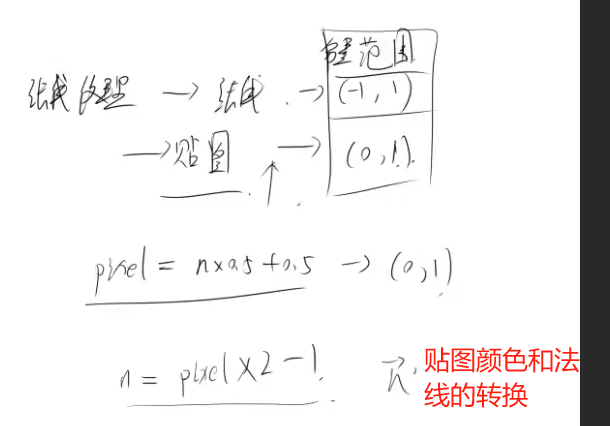 分量范围
法线纹理 → 法线 → (-1, 1)
→ 贴图 → (0, 1)
pixel = n×0.5+0.5 → (0, 1)
n = pixel×2-1. n
贴图颜色和法
线的转换